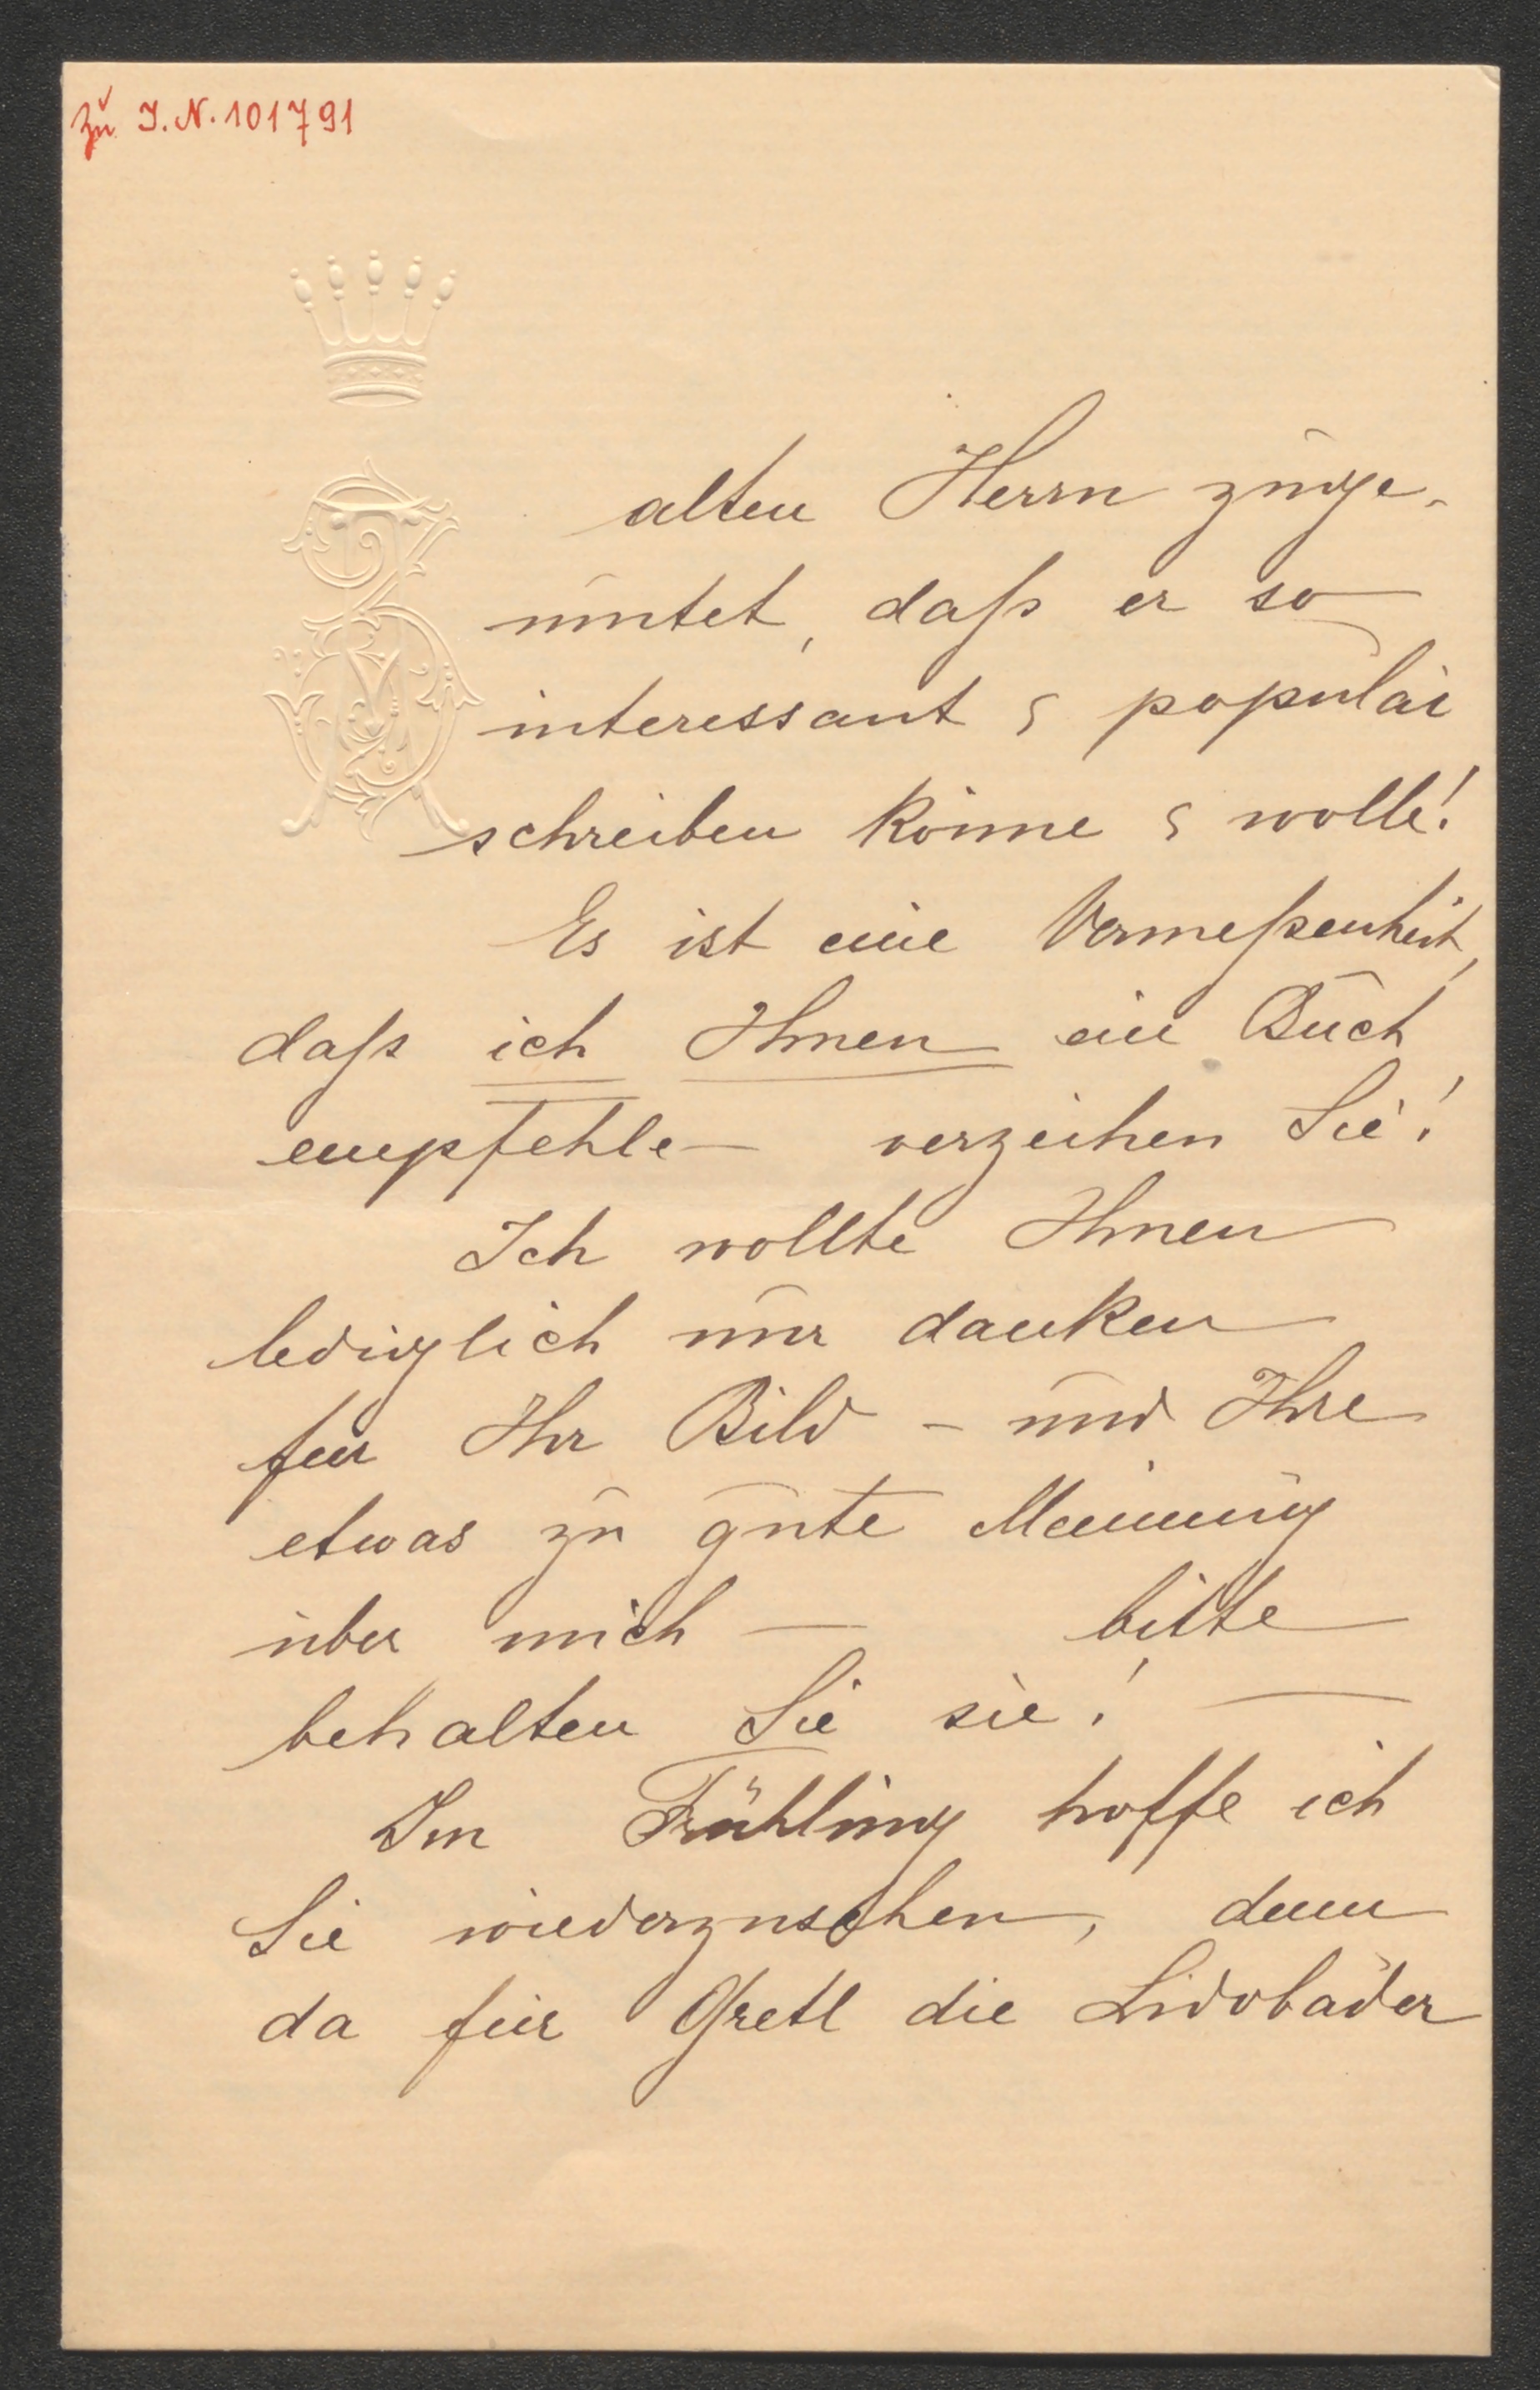 zu I.N. 101791
alten Herrn zuge-
mutet, daß er so
interessant & populär
schreiben könne & wolle!
Es ist eine Vermeßenheit,
daß ich Ihnen ein Buch
empfehle — verzeihen Sie!
Ich wollte Ihnen
lediglich nur danken
für Ihr Bild – und Ihre
etwas zu gute Meinung
über mich — bitte
behalten Sie sie! —
Im Frühling hoffe ich
Sie wiederzusehen, denn
da für Gretl die Lidobäder